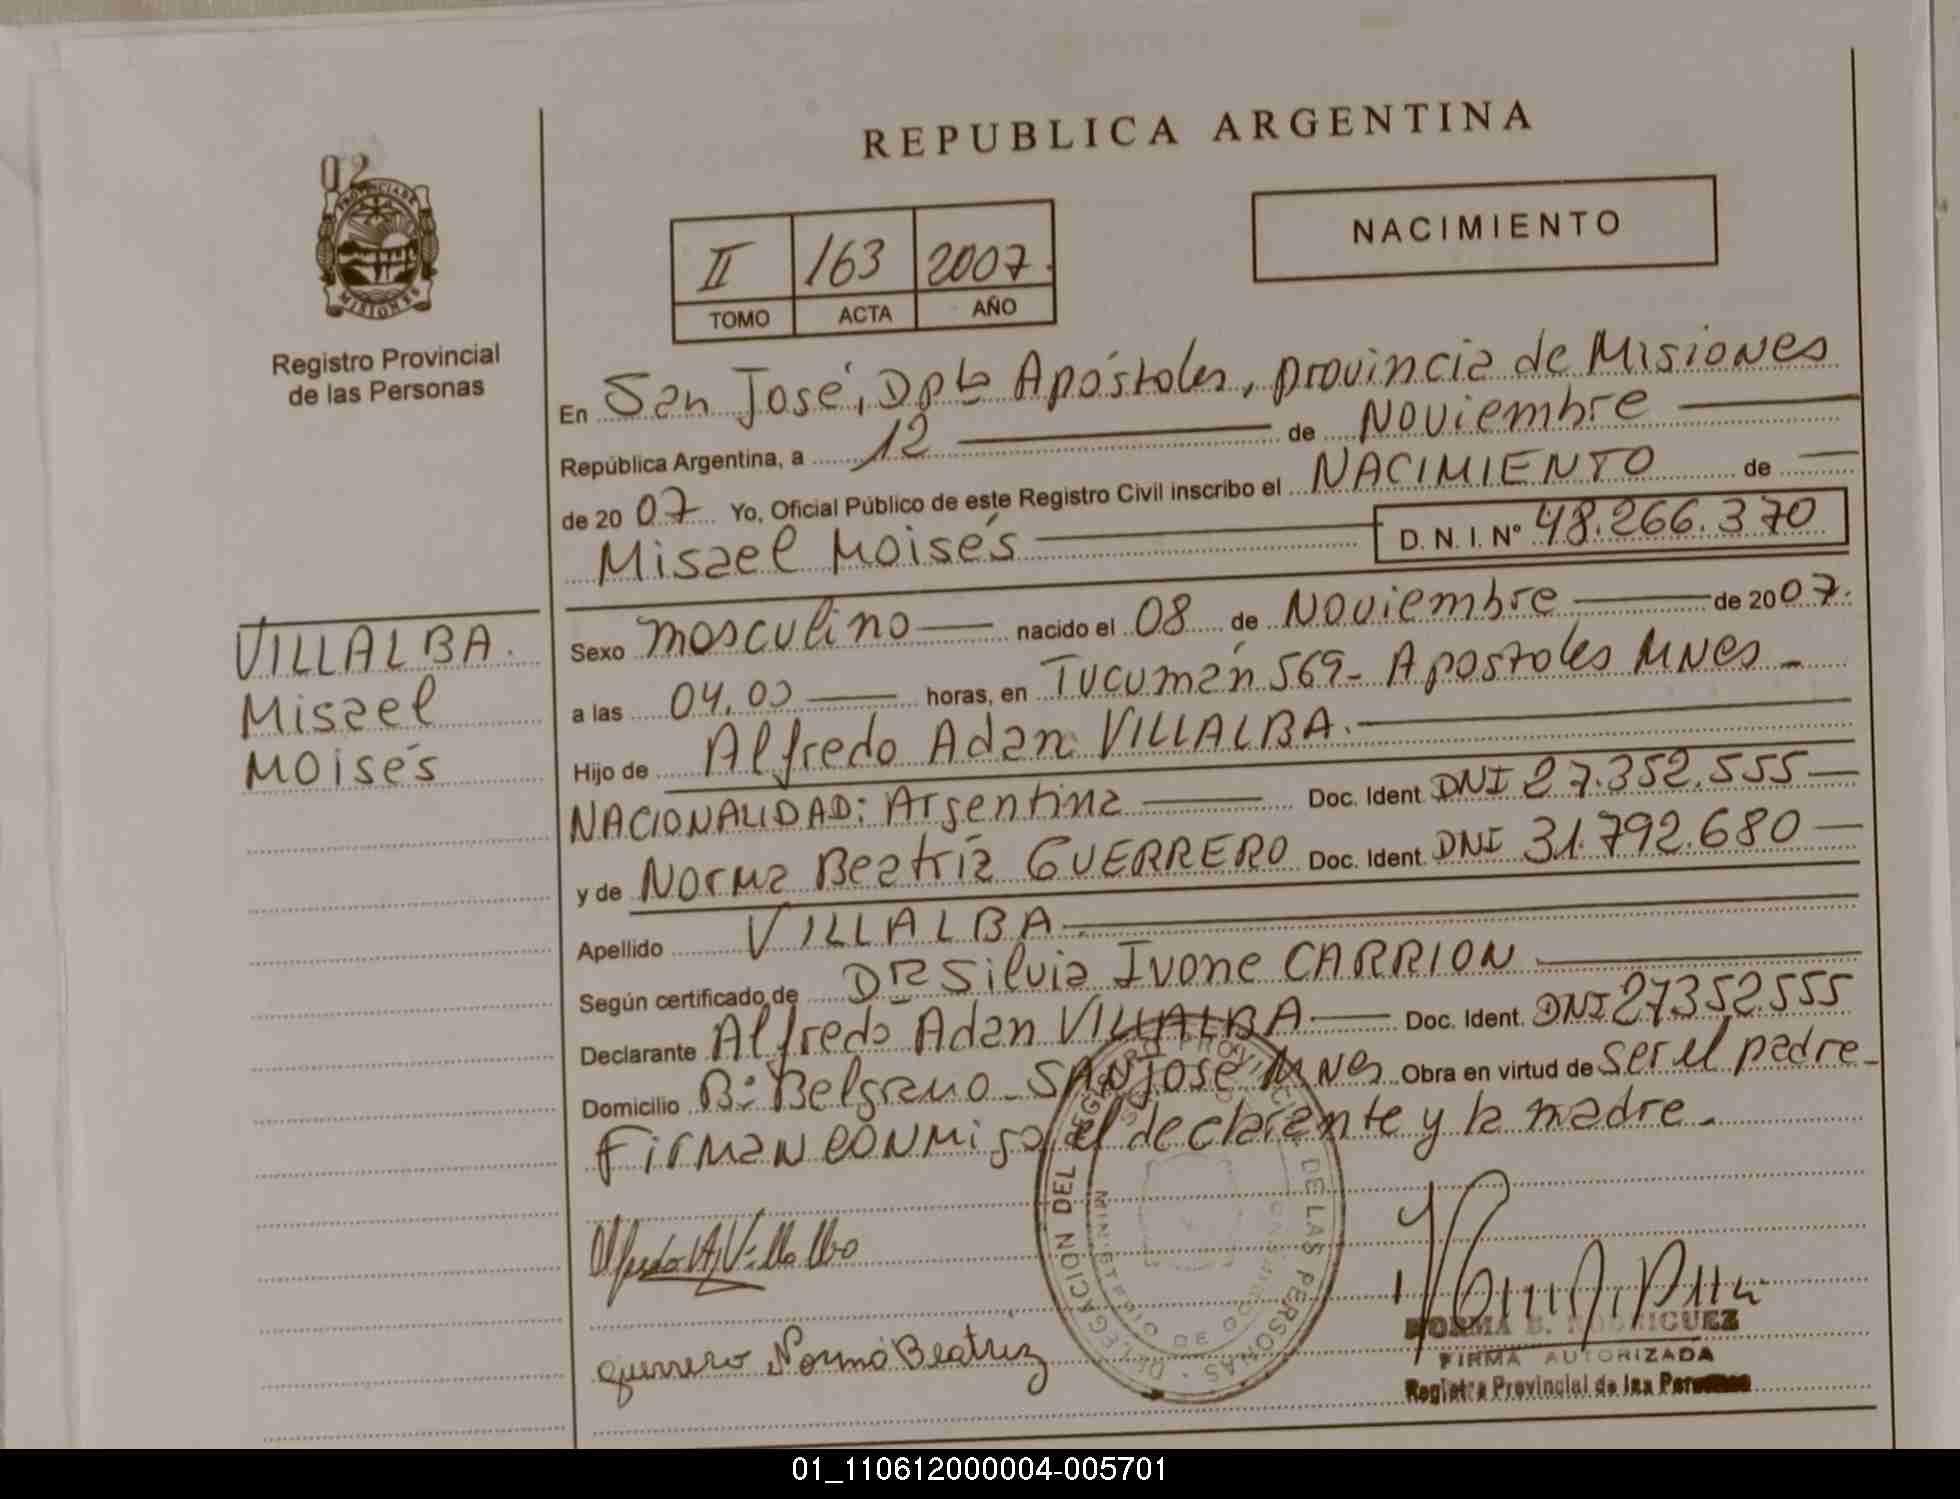 REPUBLICA ARGENTINA
02
PROVINCIA DE
MISIONES
Registro Provincial
de las Personas
II 163 2007.
TOMO ACTA AÑO
NACIMIENTO
En San José, Dpto Apóstoles, provincia de Misiones
República Argentina, a 12 de Noviembre
de 2007 Yo, Oficial Público de este Registro Civil inscribo el NACIMIENTO de
Misael Moisés D. N. I. Nº 48.266.370
VILLALBA.
Misael
Moisés
Sexo masculino nacido el 08 de Noviembre de 2007.
a las 04,00 horas, en Tucumán 569- Apostoles Mnes -
Hijo de Alfredo Adan VILLALBA.
NACIONALIDAD: Argentina Doc. Ident. DNI 27.352.555
y de Norma Beatríz GUERRERO Doc. Ident. DNI 31.792.680
Apellido VILLALBA
Según certificado de Dra Silvia Ivone CARRION
Declarante Alfredo Adan VILLALBA Doc. Ident. DNI 27352.555
Domicilio Bº Belgrano - SAN José Mnes Obra en virtud de ser el padre -
Firman conmigo el declarante y la madre.
Alfredo A. Villalba
guerrero Norma Beatriz
DELEGACION DEL REGISTRO PROVINCIAL DE LAS PERSONAS
MINISTERIO DE GOBIERNO
NORMA B. RODRIGUEZ
FIRMA AUTORIZADA
Registro Provincial de las Personas
01_110612000004-005701